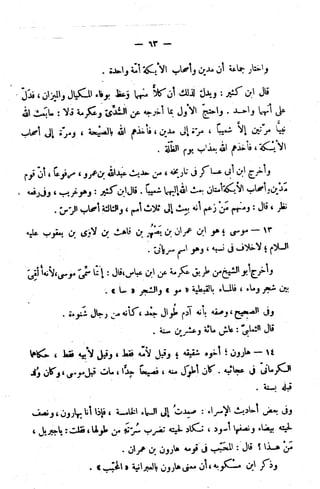 — ٦٣ —
واختار جماعة أن مدين وأصحاب الأيكة أمة واحدة .
قال ابن كثير : ويدل لذلك أن كلاًّ منهما وُعِظ بوفاء المكيال والميزان ، فدلّ
على أنهما واحد . واحتج الأول بما أخرجه عن السُّدّىّ وعكرمة قالا : ما بعث الله
نبيا مرتين إلّا شعيبا ، مرّة إلى مدين ، فأخذهم الله بالصيحة ، ومرّة إلى أصحاب
الأيكة ، فأخذهم الله بعذاب يوم الظّلّة .
وأخرج ابن أبى عساكر فى تاريخه ، من حديث عبدالله بن عمرو ، مرفوعا ، أن قوم
مَدْيَن وأصحاب الأيكة أمتان بعث الله إليهما شعيبا . قال ابن كثير : وهو غريب ، وفى رفعه
نظر ، قال : ومنهم مَنْ زعم أنه بعث إلى ثلاث أمم ، والثالثة أصحاب الرّسّ .
١٣ — موسى ؛ هو ابن عمران بن يَصْهُر بن قاهث بن لاوى بن يعقوب عليه
السلام ؛ لا خلاف فى نسبه ، وهو اسم سريانىّ .
وأخرج أبو الشيخ من طريق عكرمة عن ابن عباس ، قال : إنّما سُمِّىَ موسى ، لأنه ألقى
بين شجر وماء ، فالماء بالقبطية « مو » والشجر « سا » .
وفى الصحيح ، وصفه بأنه آدم طُوال جعد ، كأنه من رجال شنوءة .
قال الثعلبىّ : عاش مائة وعشرين سنة .
١٤ — هارون ؛ أخوه شقيقه ؛ وقيل لأمّه فقط ، وقيل لأبيه فقط ، حكاهما
الكرمانىّ فى عجائبه . كان أطول منه ، فصيحا جدًّا ، مات قبل موسى ، وكان وُلد
قبله بسنة .
وفى بعض أحاديث الإسراء : صعدتُ إلى السماء الخامسة ، فإذا أنا بهارون ، ونصف
لحيته بيضاء ونصفها أسود ، تكاد لحيته تضرب سُرّتَه من طولها ، فقلت : يا جبريل ،
مَنْ هذا ؟ قال : المحبَّب فى قومه هارون بن عمران .
وذكر ابن مسكويه ، أن معنى هارون بالعبرانية « المحبّب » .